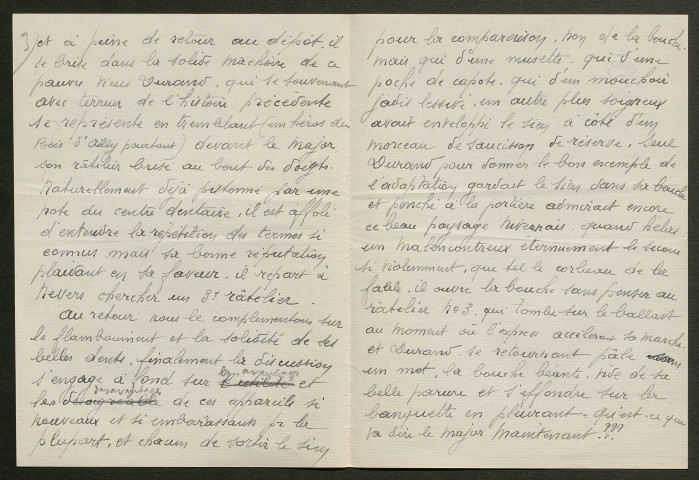 3) et à peine de retour au dépôt, il
se brise dans la solide machoire de ce
pauvre vieux Durand, qui se souvenant
avec terreur de l'histoire précédente
se représente en tremblant (un héros du
Bois d'Ailly pourtant) devant le Major
son râtelier brisé au bout des doigts.
Naturellement déjà pistonné par une
note du centre dentaire, il est affolé
d'entendre la répétition des termes si
connus mais sa bonne réputation
plaidant en sa faveur, il repart à
Nevers chercher un 3e râtelier.
Au retour nous le complimentons sur
le flamboiement et la solidité de ses
belles dents, finalement la discussion
s'engage à fond sur les avantages l'utilité et
les désagréable de ces appareils si
nouveaux et si embarassants pr la
plupart, et chacun de sortir le sien
pour la comparaison, non de la bouche
mais qui d'une musette, qui d'une
poche de capote, qui d'un mouchoir
jadis lessivé, un autre plus soigneux
avait enveloppé le sien à côté d'un
morceau de saucisson de réserve, seul
Durand, pour donner le bon exemple de
l'adaptation gardait le sien dans sa bouche
et penché à la portière admirait encore
ce beau paysage Nivernais, quand hélas
un malencontreux éternuement le secoue
si violemment, que tel le corbeau de la
fable, il ouvre la bouche sans penser au
râtelier No 3, qui tombe sur le ballast
au moment où l'express accélérait sa marche
et Durand se retournant pâle
un mot, la bouche béante, vide de sa
belle parure et s'effondre sur la
banquette en pleurant = qu'est-ce que
va dire le major maintenant ???